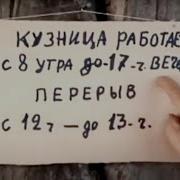 КУЗНИЦА РАБОТАЕ
С 8 УТРА ДО-17-Ч. ВЕЧ
ПЕРЕРЫВ
С 12 Ч — ДО 13-Ч.